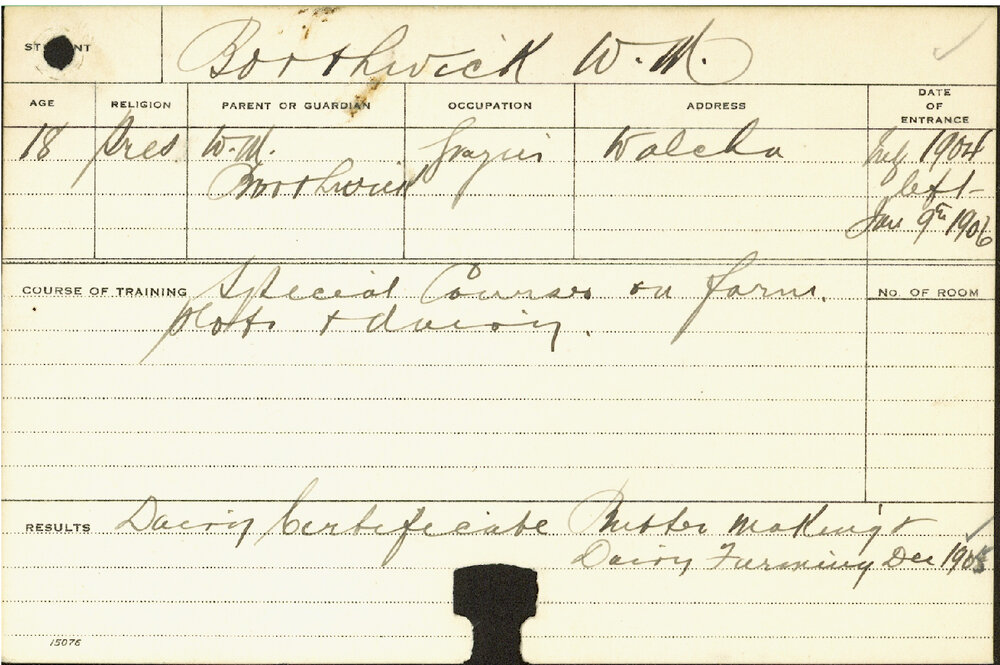 STUDENT
Borthwick W. M.
AGE RELIGION PARENT OR GUARDIAN OCCUPATION ADDRESS DATE OF ENTRANCE
18 Pres W. M. Grazier Walcha July 1904
Borthwick left
Jan 9th 1906
COURSE OF TRAINING Special Course on farm, No. OF ROOM
plots & dairy.
RESULTS Dairy Certificate Butter Making &
Dairy Farming Dec 1905
15076